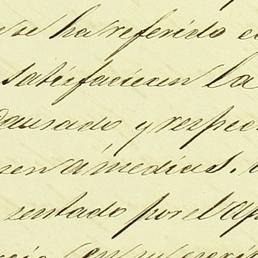 se ha referido e
satisfaccion la
Causado y respec
sen a medias.
sentado por el ap